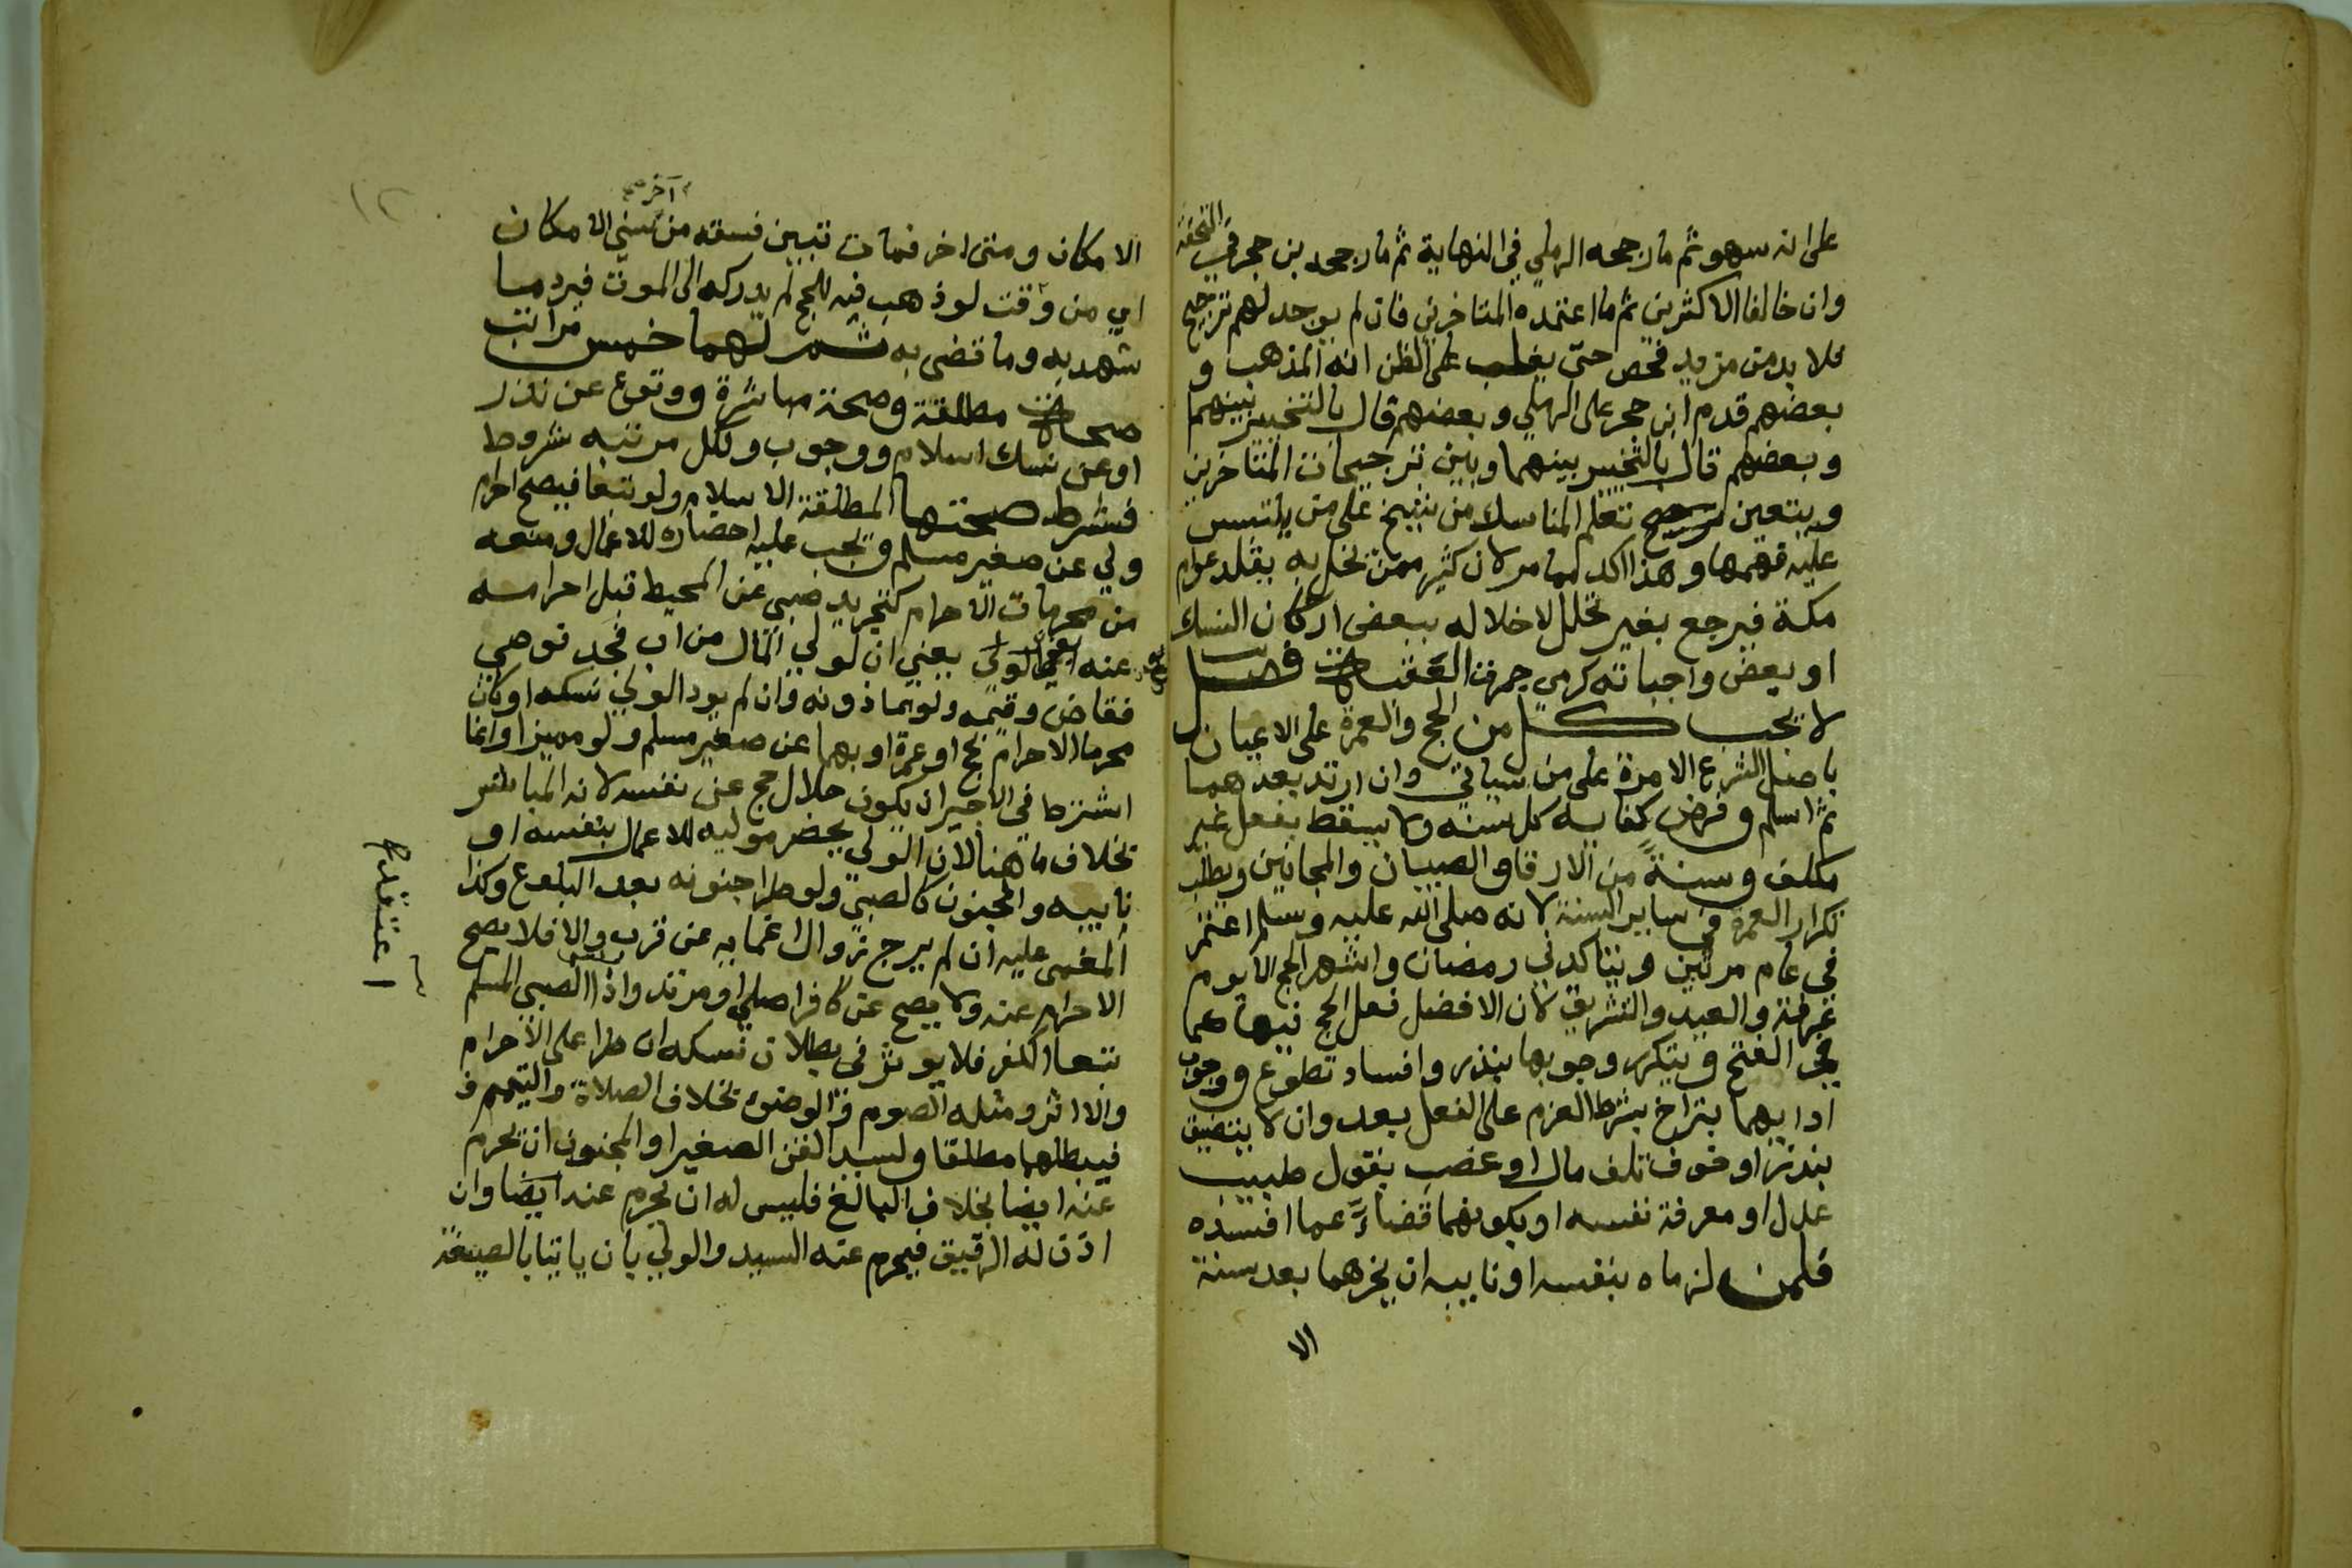 على انه سهو ثم ما رجحه الرملي في النهاية ثم ما رجحه بن حجر في التحفة
وان خالفا الاكثرين ثم ما اعتمده المتاخرين فان لم يوجد لهم ترجيح
فلا بد من مزيد فحص حتى يغلب على الظن انه المذهب و
بعضهم قدم ابن حجر على الرملي و بعضهم قال بالتخيير بينهما
وبعضهم قال بالتخيير بينهما وبين ترجيحات المتاخرين
ويتعين تعلم المناسك من شيخ على من يلتبس
عليه فهمها وهذا اكد مما مر لان كثير ممن تخل به يقلد عوام
مكة فيرجع بغير تحلل لاخلاله ببعض اركان النسك
او بعض واجباته كرمي جمرة العقبة فصل
لا يجب كل من الحج والعمرة على الاعيان
باصل الشرع الا مرة على من سياتي وان ارتد بعدهما
ثم اسلم وفرض كفاية كل سنه ولا يسقط بفعل غير
مكلف وسنة من الارقا والصبيان والمجانين ويطلب
تكرار العمرة في ساير السنة لانه صلى الله عليه وسلم اعتمر
في عام مرتين ويتاكد في رمضان واشهر الحج الا يوم
عرفة والعيد والتشريق لان الافضل فعل الحج فيها كما
في الفتح ويتكرر وجوبها بنذر وافساد تطوع ووجوب
ادايهما بتراخ بشرط العزم على الفعل بعد وان لا يتضيق
بنذر او خوف تلف مال او عضب بقول طبيب
عدل او معرفة نفسه او بكونهما قضاءً عما افسده
فلمن لزماه بنفسه او نايبه ان يؤخرهما بعد سنة
الا
آخر صح
الامكان ومتى اخر فمات تبين فسقه من سني الامكان
اي من وقت لو ذهب فيه للحج لم يدركه الى الموت فيرد ما
شهد به وما قضى به ثم لهما خمس مراتب
صحة مطلقة وصحة مباشرة ووقوع عن نذر
او عن نسك اسلام ووجوب ولكل مرتبه شروط
فشرط صحتها المطلقة الاسلام ولو تبعا فيصح احرام
ولي عن صغير مسلم ويجب عليه احضاره للاعمال ومنعه
من محرمات الاحرام كتجريد صبي عن المحيط قبل احرامه
عنه الولي يعني ان لولي المال من اب فجد فوصي
فقاض وقيمه ولو بماذونه وان لم يود الولي نسكه او كان
محرما الاحرام بحج او عمرة او بهما عن صغير مسلم ولو مميزا وانما
اشترط في الاجير ان يكون حلال حج عن نفسه لانه المباشر
بخلاف ما هنا لان الولي يحضر موليه للاعمال بنفسه او
نايبه والمجنون كالصبي ولو طرا جنونه بعد البلوغ وكذا
المغمى عليه ان لم يرج زوال اغمايه عن قرب والا فلا يصح
الاحرام عنه ولا يصح عن كافر اصلي او مرتد واذا الصبي المسلم
اعتقد
تبعا الكفر فلا يوثر في بطلان نسكه ان طرا على الاحرام
والا اثر ومثله الصوم والوضوء بخلاف الصلاة والتيمم ف
فيبطلهما مطلقا ولسيد القن الصغير او المجنون ان يحرم
عنه ايضا بخلاف البالغ فليس له ان يحرم عنه ايضا وان
اذن له الرقيق فيحرم عنه السيد والولي بان ياتيا بالصيغة